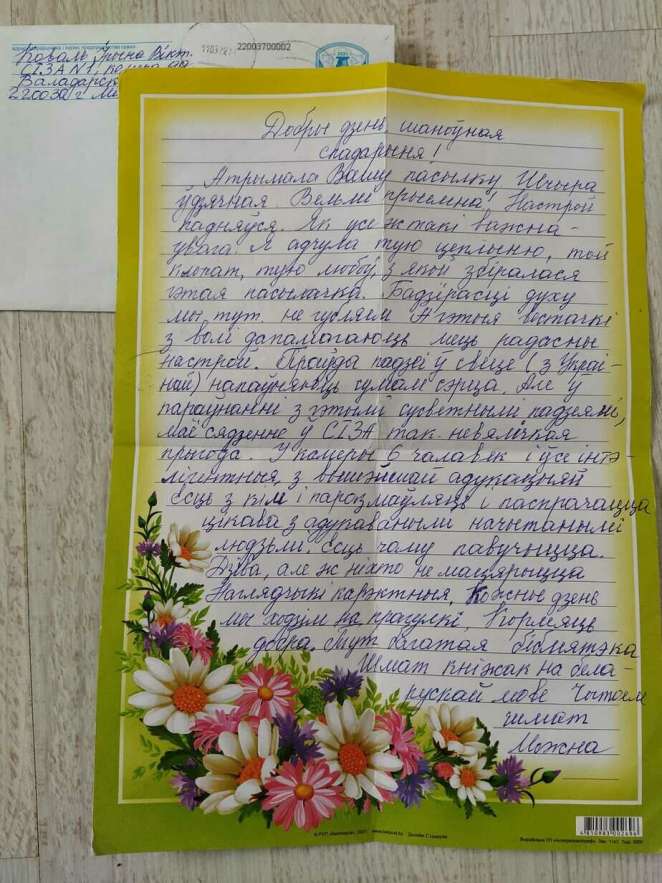 Коваль Ірына Вікт.
СІЗА №1,
Валадарск
220030 г. М
22003700002
Добры дзень, шаноўная
спадарыня!
Атрымала Вашу пасылку Шчыра
ўдзячная Вельмі прыемна! Настрой
падняўся. Як усе ж такі важна -
увага. Я адчува тую цеплыню, той
клопат, тую любоў, з якой збіралася
гэтая пасылачка. Бадзёрасці духу
мы тут не губляем А гэтыя вестачкі
з волі дапамагаюць мець радасны
настрой. Праўда падзеі ў свеце (з Украі-
най) напаўняюць сумам сэрца. Але ў
параўнанні з гэтымі сусветнымі падзеямі,
маё сядзенне ў СІЗА так. невялічкая
прыгода. У камеры 6 чалавек і ўсе інтэ-
лігентныя, з вышэйшай адукацыяй
Ёсць з кім і паразмаўляць і паспрачацца
Цікава з адукаванымі начытанымі
людзьмі. Ёсць чаму павучыцца.
Дзіва, але ж ніхто не мацярыцца
Наглядчыкі карэктныя. Кожны дзень
мы ходзім на прагулкі. Кормяць
добра. Тут багатая бібліятэка
Шмат кніжак на бела-
рускай мове Чытаем
шмат
Можна